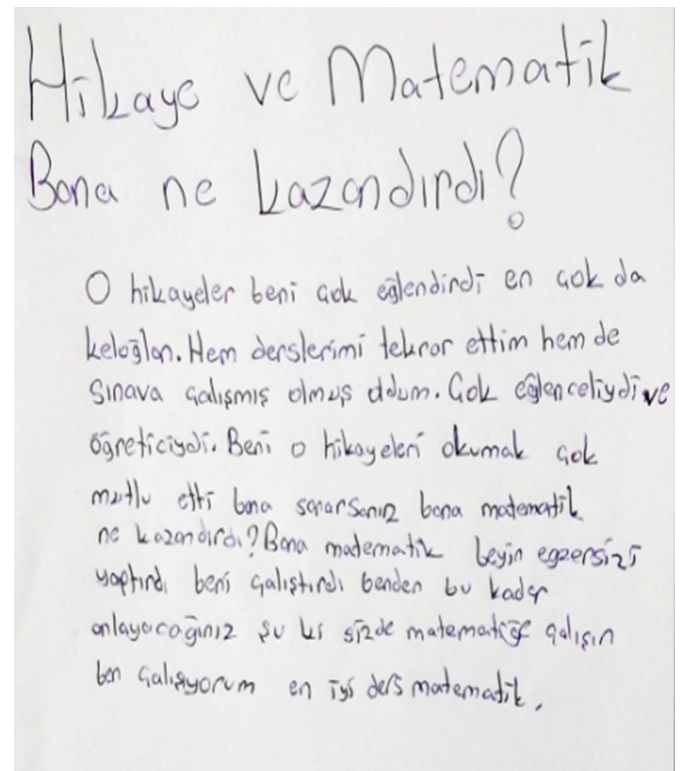 Hikaye ve Matematik
Bana ne kazandırdı?
O hikayeler beni çok eğlendirdi en çok da
keloğlan. Hem derslerimi tekrar ettim hem de
sınava çalışmış olmuş oldum. Çok eğlenceliydi ve
öğreticiydi. Beni o hikayeleri okumak çok
mutlu etti bana sorarsanız bana matematik
ne kazandırdı? Bana matematik beyin egzersizi
yaptırdı beni çalıştırdı benden bu kadar
anlayacağınız şu ki sizde matematiğe çalışın
ben çalışıyorum en iyi ders matematik.